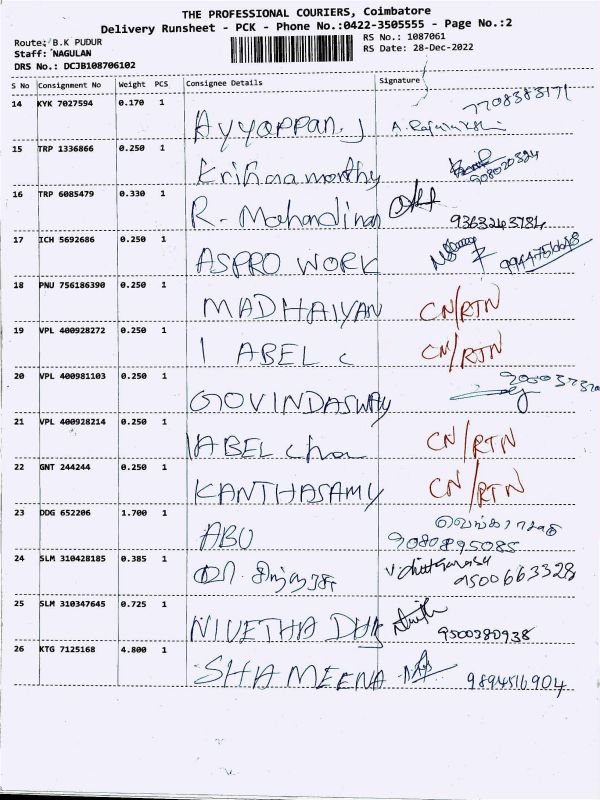 THE PROFESSIONAL COURIERS, Coimbatore
Delivery Runsheet - PCK - Phone No.:0422-3505555 - Page No.:2
Route: B.K PUDUR
Staff: NAGULAN
DRS No.: DCJB108706102
RS No.: 1087061
RS Date: 28-Dec-2022
S No Consignment No Weight PCS Consignee Details Signature
14 KYK 7027594 0.170 1 Ayyappan. J 7708383171
15 TRP 1336866 0.250 1 Krishnamorthy
16 TRP 6085479 0.330 1 R. Mohandinan 9363243784
17 ICH 5692686 0.250 1 ASPRO WORK
18 PNU 756186390 0.250 1 MADHAIYAN CN/RTN
19 VPL 400928272 0.250 1 I ABEL C CN/RTN
20 VPL 400981103 0.250 1 GOVINDASWAY
21 VPL 400928214 0.250 1 IABEL CN/RTN
22 GNT 244244 0.250 1 KANTHASAMY CN/RTN
23 DDG 652206 1.700 1 ABU 9080895085
24 SLM 310428185 0.385 1 9500663328
25 SLM 310347645 0.725 1 NIVETHA 9500380938
26 KTG 7125168 4.800 1 SHAMEENA 9894516904